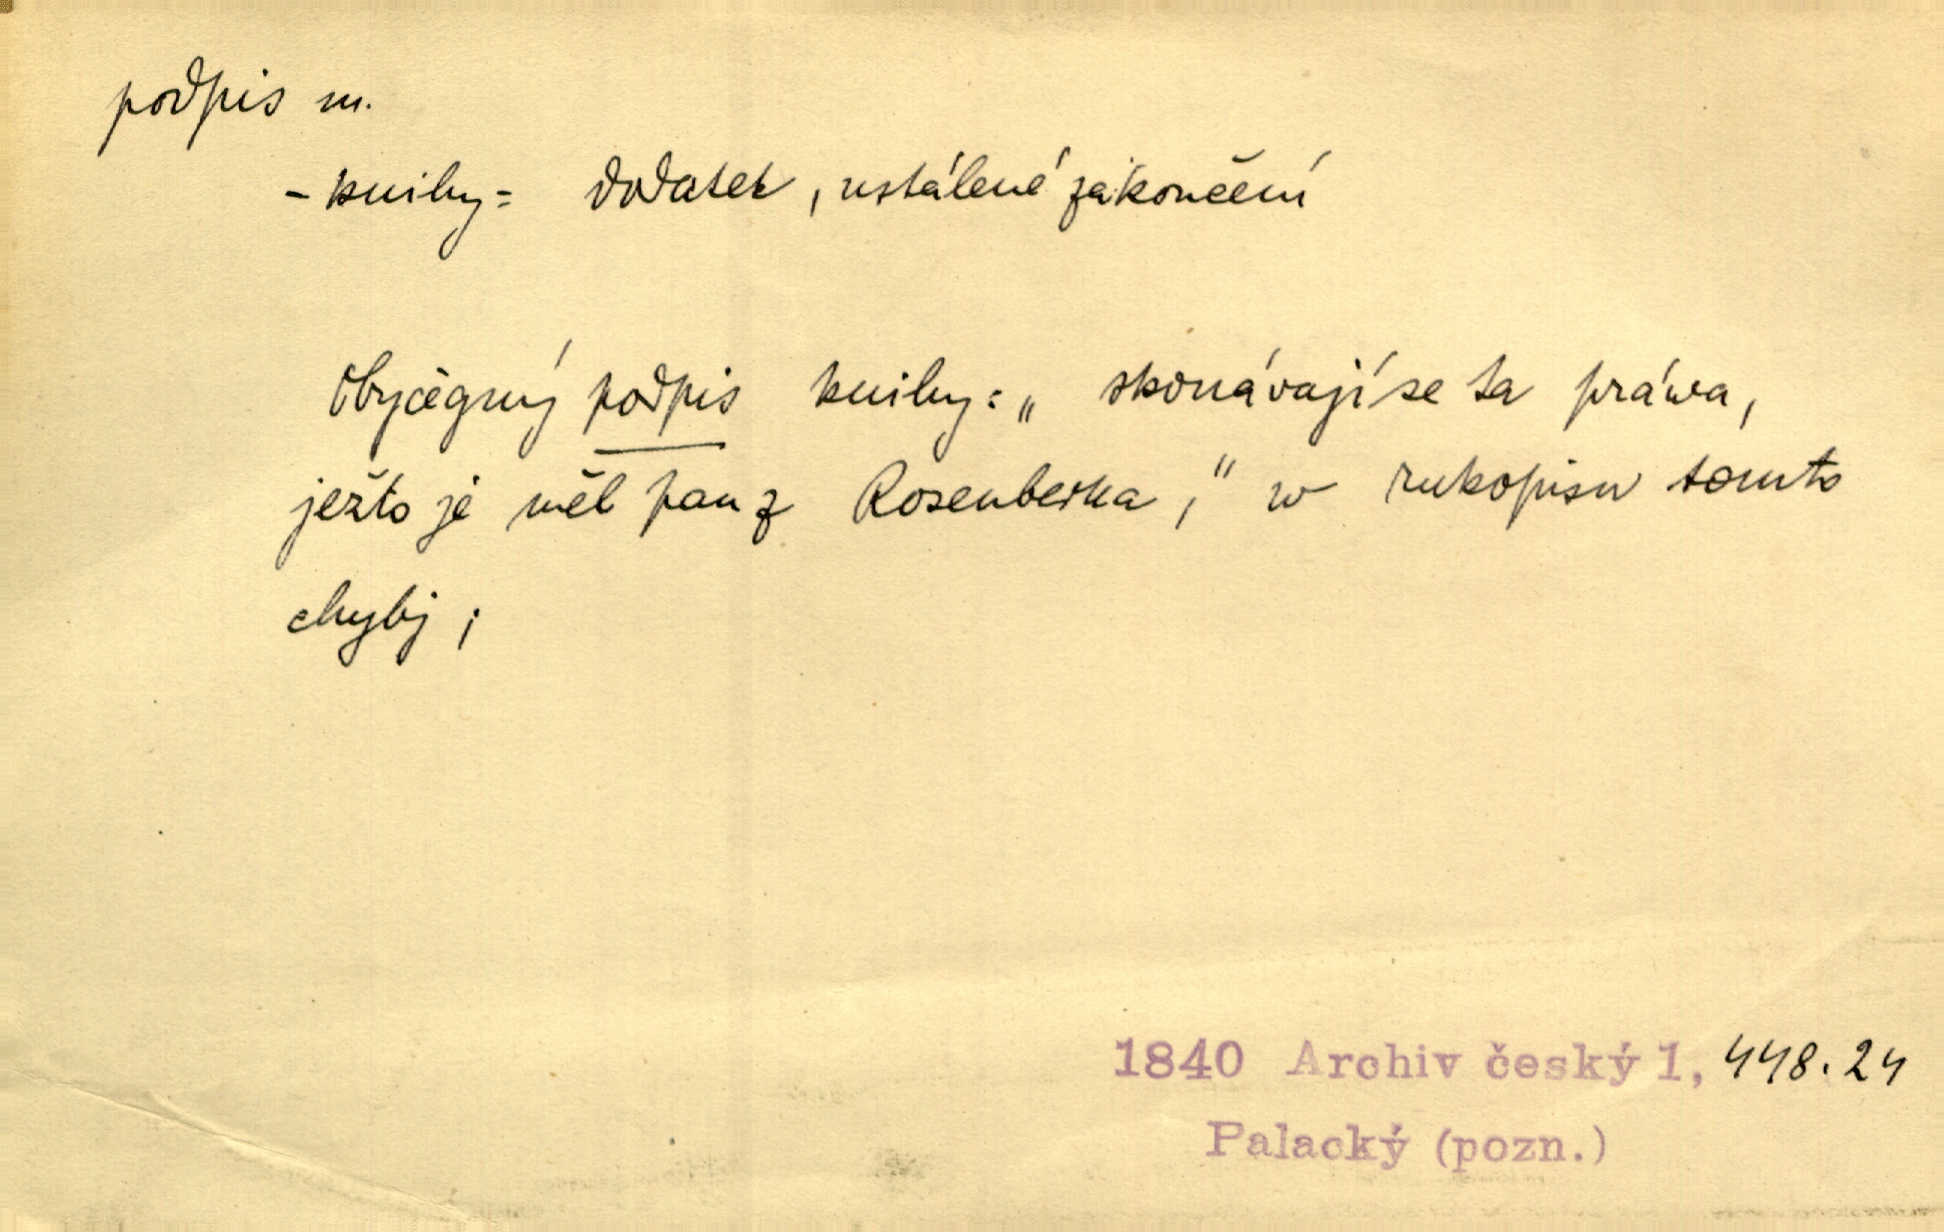 podpis m.
- knihy = dodatek, ustálené zakončení
Obyčegný podpis knihy: „skonávají se ta práwa,
ježto je měl pan z Rosenberka," w rukopisu tomto
chybj;
1840 Archiv český 1, 448.24
Palacký (pozn.)